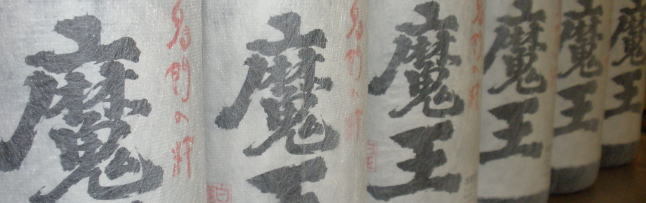 魔
名門の粋
魔王
名門の粋
魔王
魔王
魔王
魔王